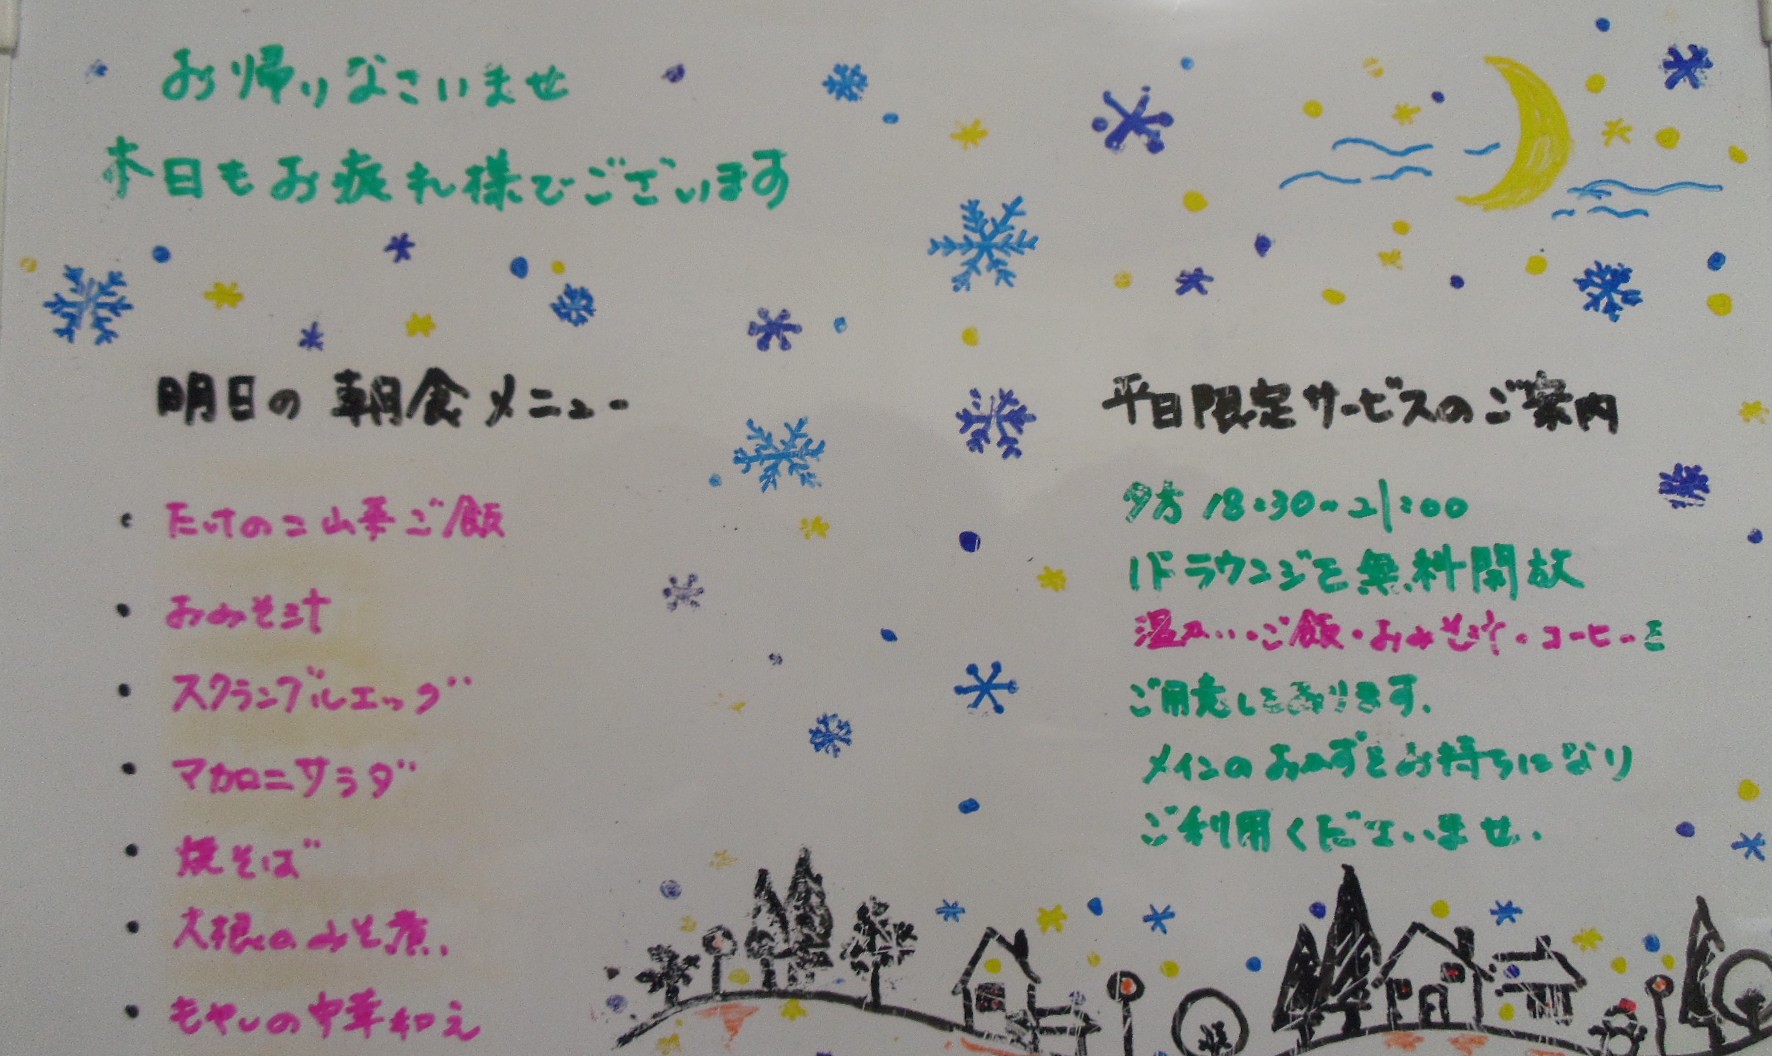 お帰りなさいませ
本日もお疲れ様でございます
明日の朝食メニュー
・たけのこ山菜ご飯
・おみそ汁
・スクランブルエッグ
・マカロニサラダ
・焼そば
・大根のみそ煮
・もやしの中華和え
平日限定サービスのご案内
夕方18:30~21:00
1Fラウンジを無料開放
温かい・ご飯・おみそ汁・コーヒーを
ご用意しております。
メインのおかずをお持ちになり
ご利用くださいませ.